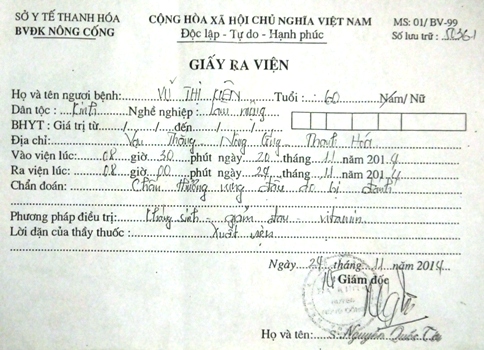 SỞ Y TẾ THANH HÓA
BVĐK NÔNG CỐNG
CỘNG HÒA XÃ HỘI CHỦ NGHĨA VIỆT NAM
Độc lập - Tự do - Hạnh phúc
MS: 01/ BV-99
Số lưu trữ :
GIẤY RA VIỆN
Họ và tên người bệnh: VŨ THỊ Tuổi : 60 Nam/ Nữ
Dân tộc : Kinh Nghề nghiệp : Làm ruộng
BHYT : Giá trị từ / / đến / /
Địa chỉ: Vạn Thắng Nông Cống Thanh Hóa
Vào viện lúc: 08 giờ 30 phút ngày 20 tháng 11 năm 2014
Ra viện lúc: 08 giờ 00 phút ngày 24 tháng 11 năm 2014
Chẩn đoán: Chấn thương vùng đầu do bị đánh
Phương pháp điều trị: Kháng sinh giảm đau vitamin
Lời dặn của thầy thuốc : Xuất viện
Ngày 24 tháng 11 năm 2014
Giám đốc
Họ và tên: Nguyễn Quốc